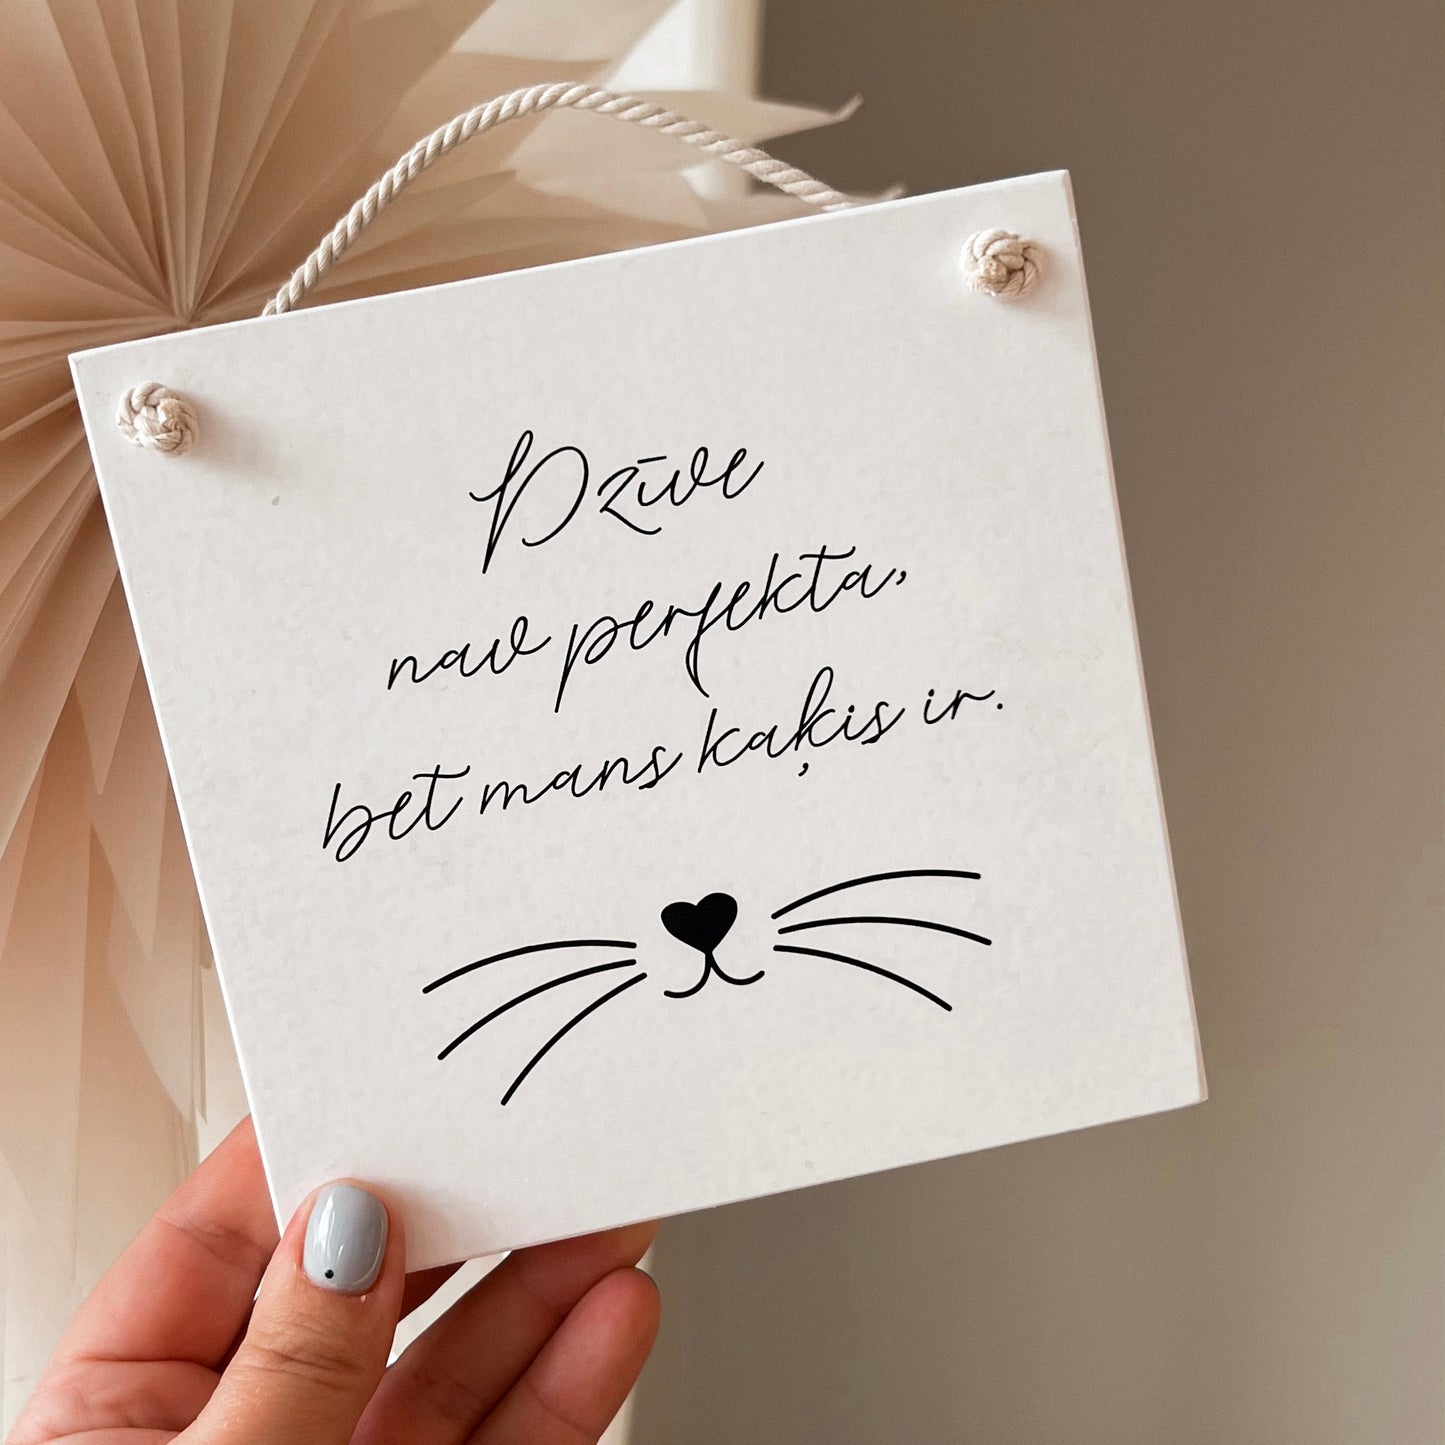 Dzīve
nav perfekta,
bet mans kaķis ir.